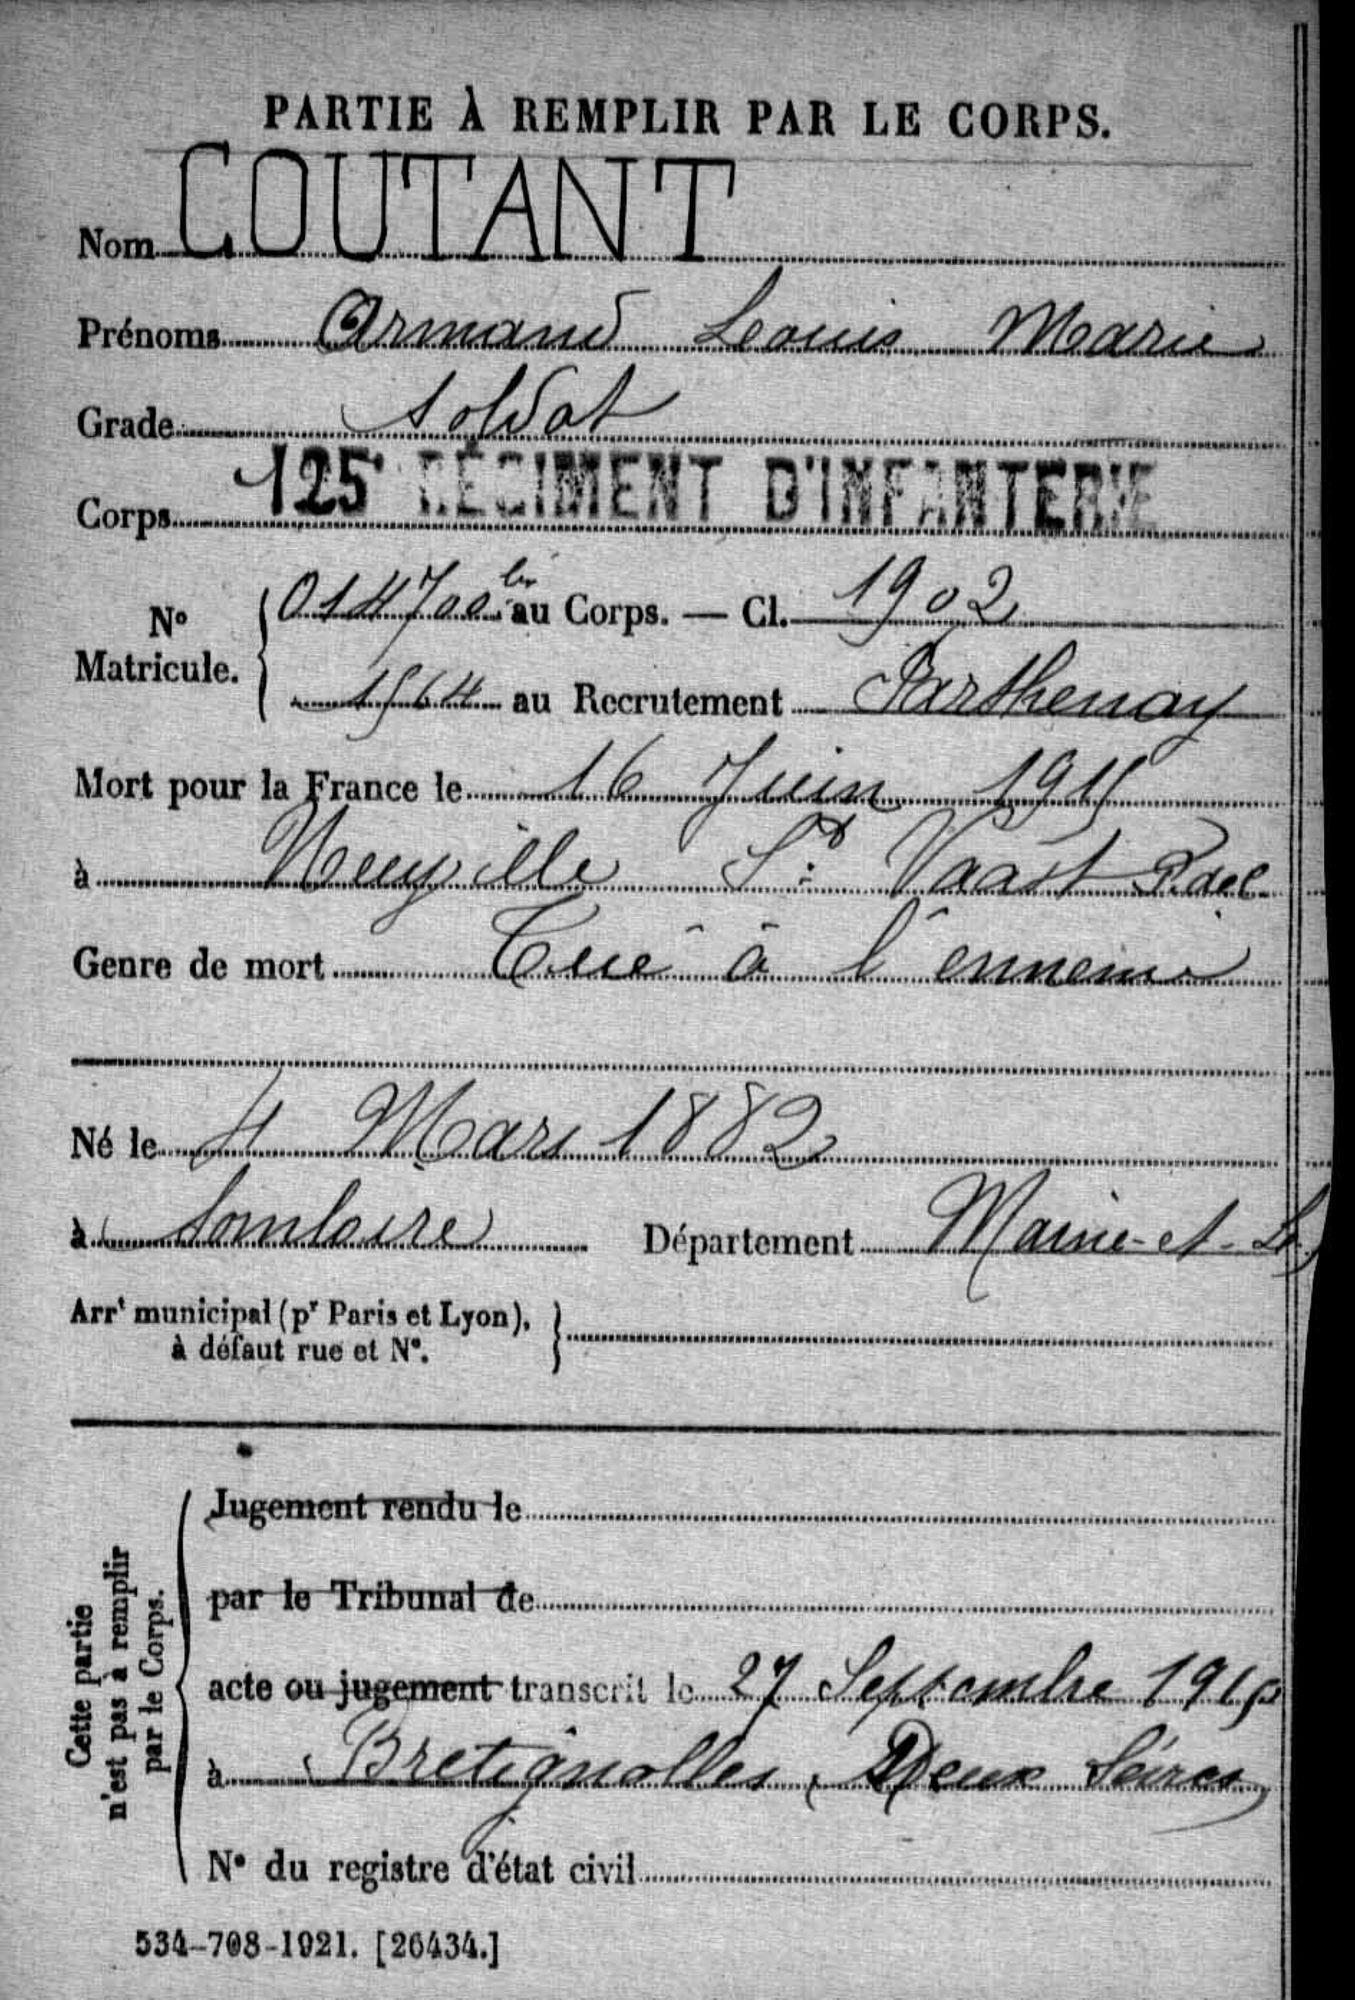 PARTIE À REMPLIR PAR LE CORPS.
Nom COUTANT
Prénoms Armand Louis Marie
Grade Soldat
Corps 125e RÉGIMENT D'INFANTERIE
No Matricule. { 014700 bis au Corps. — Cl. 1902
1564 au Recrutement Parthenay
Mort pour la France le 16 Juin 1915
à Neuville St Vaast P.de C.
Genre de mort Tué à l'ennemi
Né le 4 Mars 1882
à Somloire Département Maine-et-L.
Arrt municipal (pr Paris et Lyon), à défaut rue et No. }
Cette partie n'est pas à remplir par le Corps.
Jugement rendu le
par le Tribunal de
acte ou jugement transcrit le 27 Septembre 1915
à Bretignolles, Deux Sèvres
No du registre d'état civil
534-708-1921. [26434.]